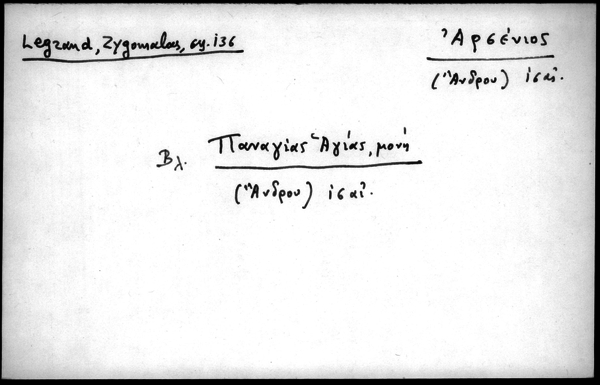 Legrand, Zygomalas, σy. 136
Ἀρσένιος
(Ἄνδρου) ιϛ αἰ.
Βλ. Παναγίας Ἁγίας, μονή
(Ἄνδρου) ιϛ αἰ.